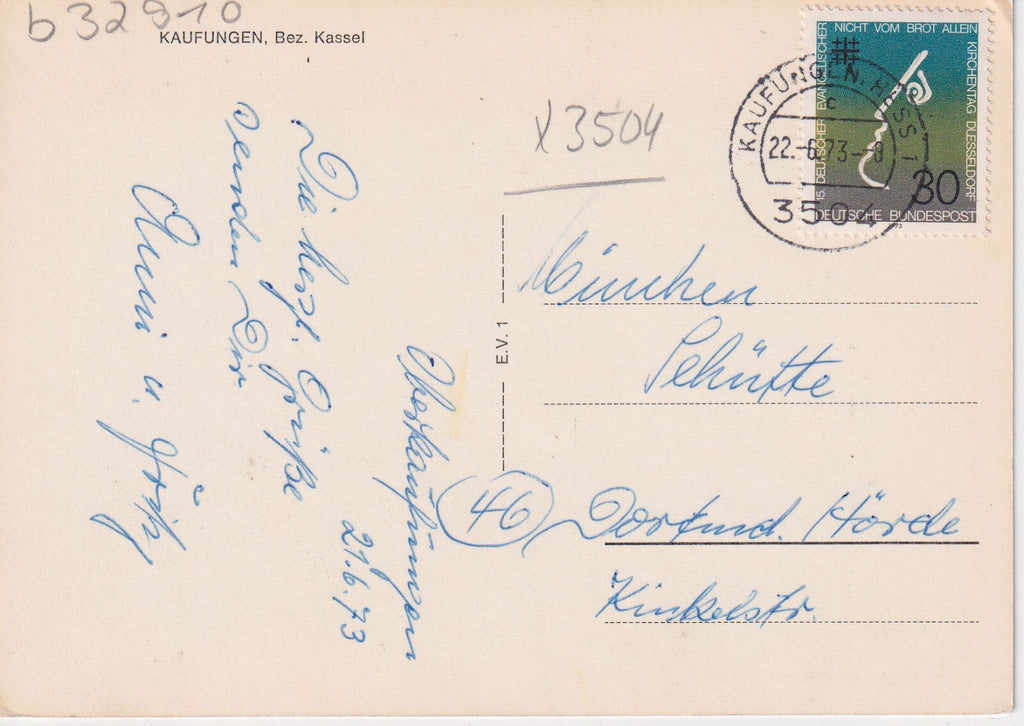 b32910
KAUFUNGEN, Bez. Kassel
x3504
Oberkaufungen
21.6.73
Die herzl. Grüße
senden Dir
Anni u.
E.V. 1
KAUFUNGEN, HESS 1
c
22.-6.73--8
3504
15. DEUTSCHER EVANGELISCHER
NICHT VOM BROT ALLEIN
KIRCHENTAG DUESSELDORF
30
DEUTSCHE BUNDESPOST
Schütte
46 Dortmund. Hörde
Kinkelstr.